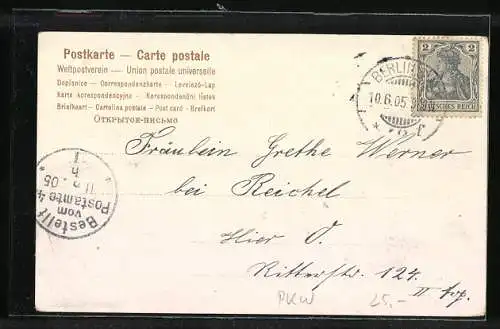 Postkarte — Carte postale
Weltpostverein — Union postale universelle
Dopisnice - Correspondenzkarte - Levelező-Lap
Karta korespondencyjna - Korespondenční lístek
Briefkaart - Cartolina postale - Post card - Brefkort
ОТКРЫТОЕ-ПИСЬМО
BERLIN
10.6.05
2 2
DEUTSCHES REICH
Fräulein Grethe Werner
bei Reichel
Hier O.
Ritterstr. 124.
II Trp.
Bestellt
vom
Postamte 4
05
PKW
25.-